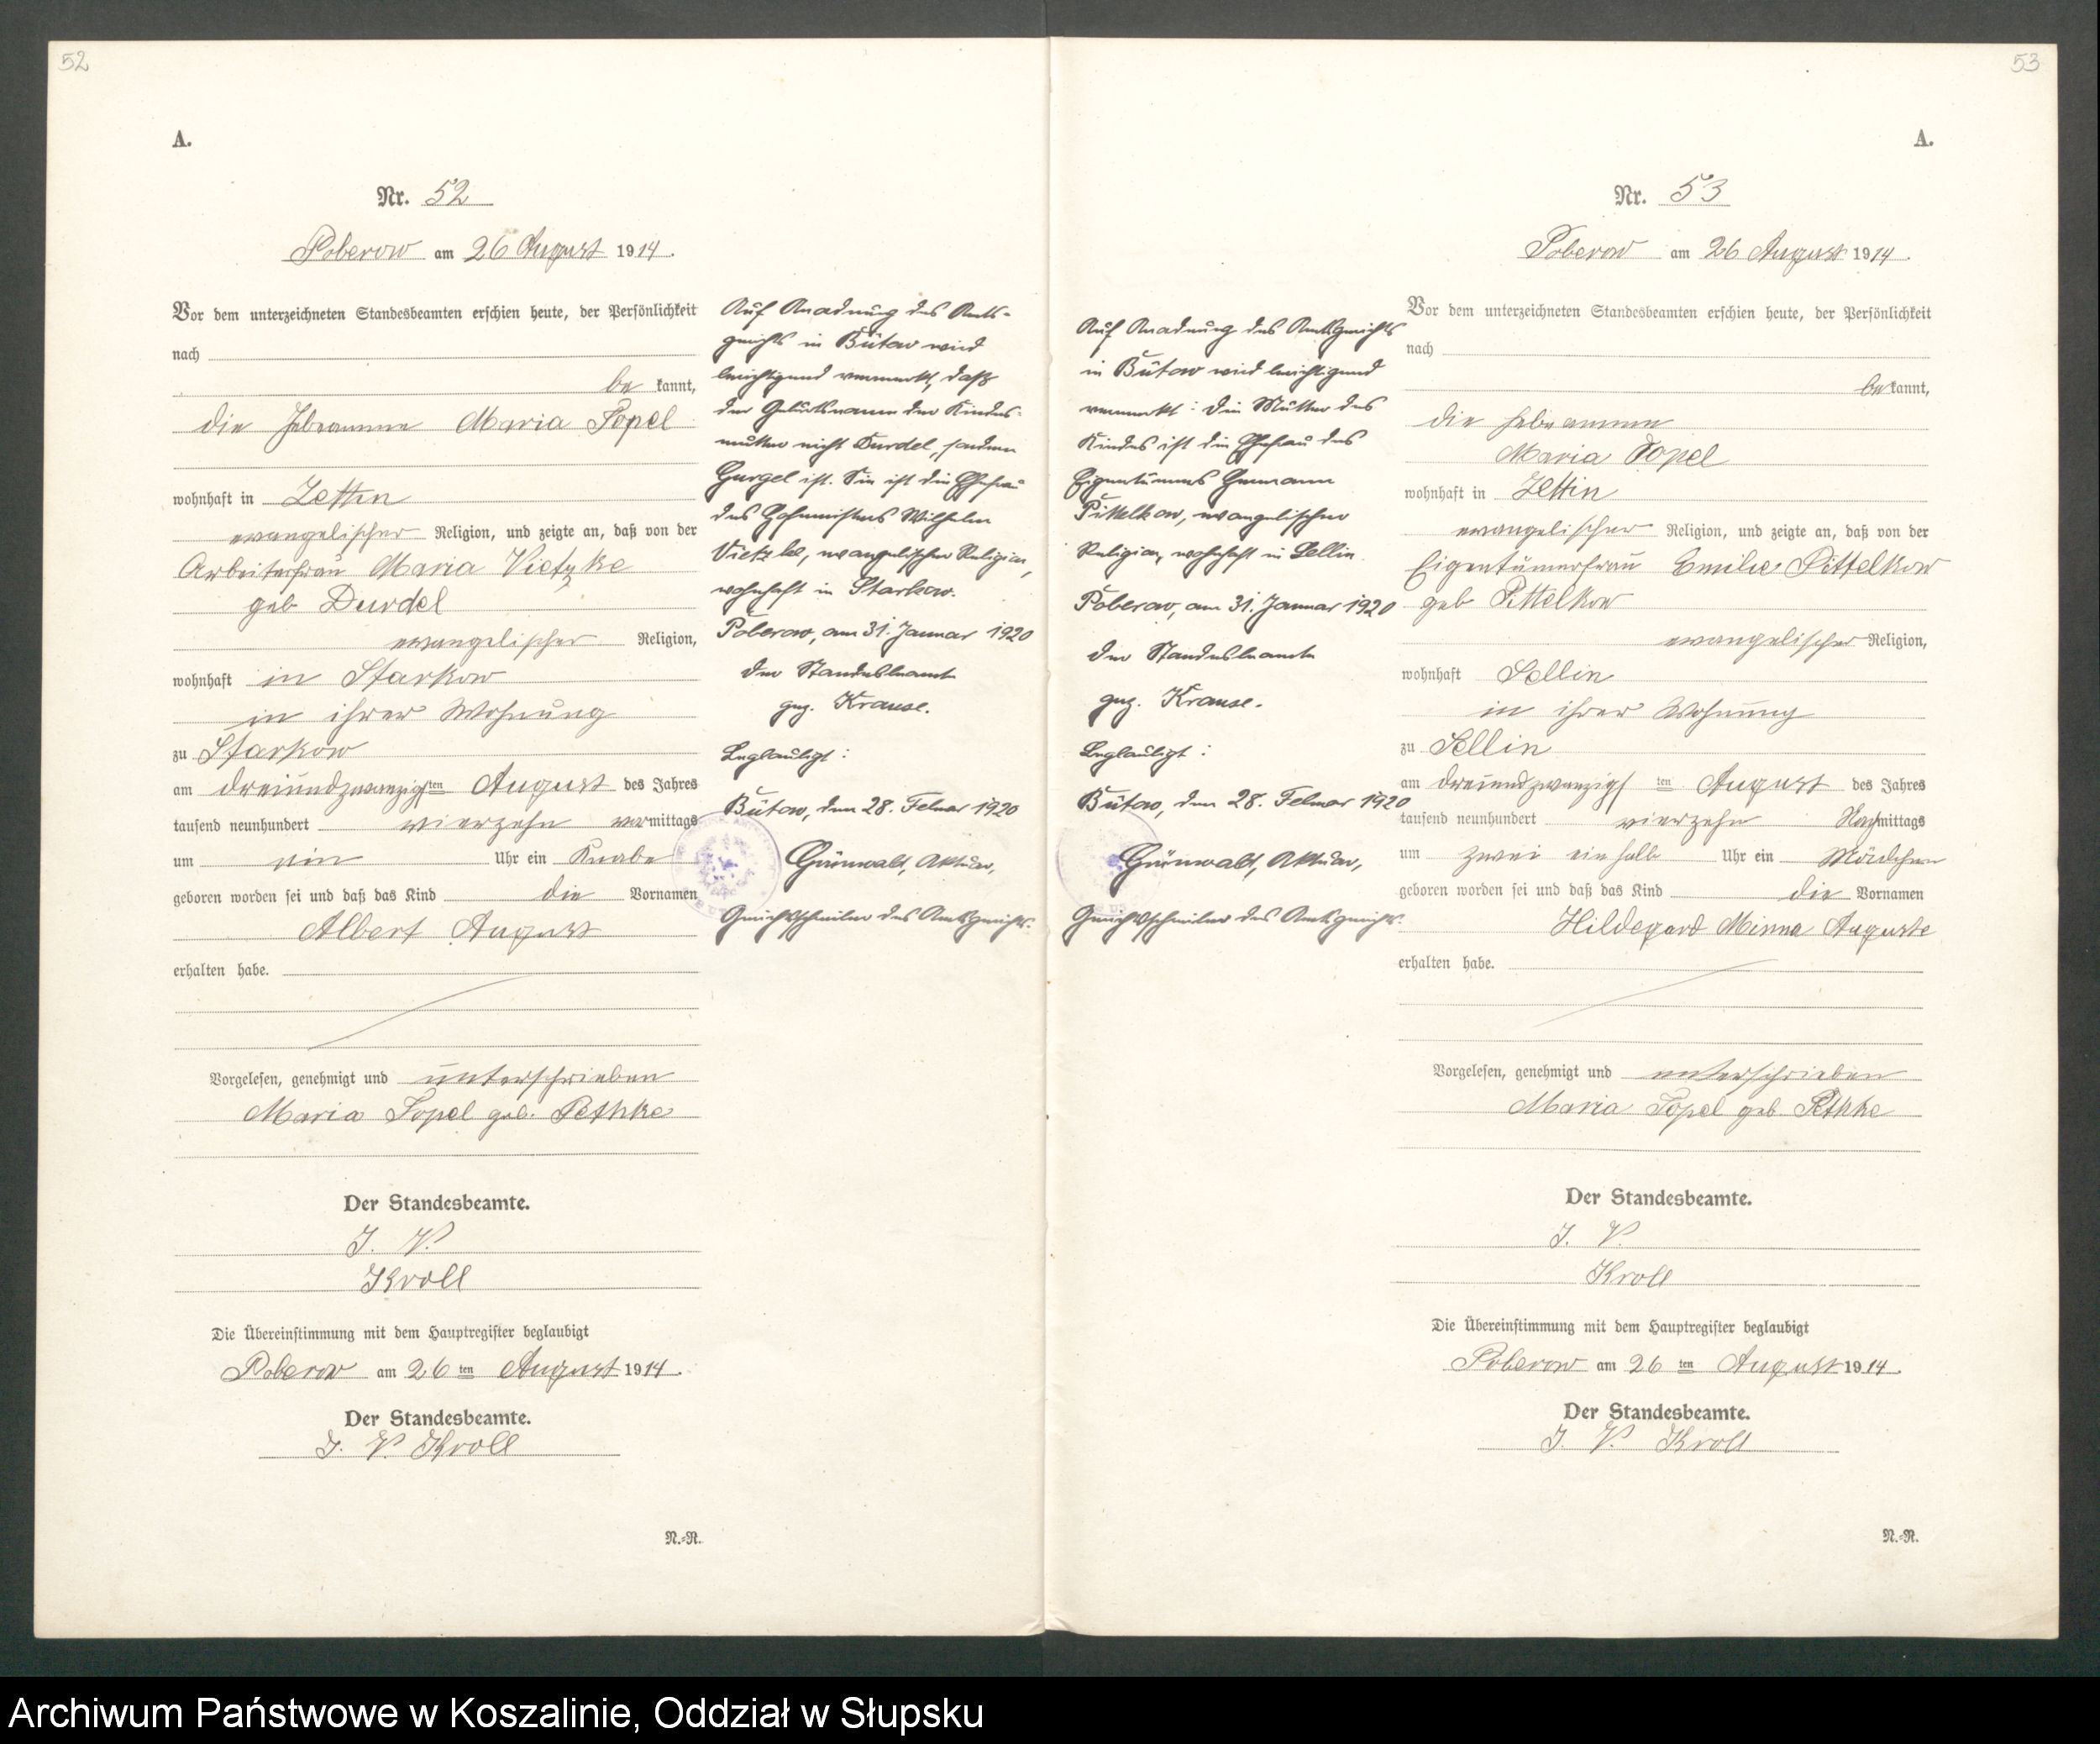 52
A.
Nr. 52
Poberow am 26 August 1914.
Vor dem unterzeichneten Standesbeamten erschien heute, der Persönlichkeit
nach
be kannt,
die Hebeamme Maria Popel
wohnhaft in Zettin
evangelischer Religion, und zeigte an, daß von der
Arbeiterfrau Maria Vietzke
geb Durdel
evangelischer Religion,
wohnhaft in Starkow
in ihrer Wohnung
zu Starkow
am dreiundzwanzigsten August des Jahres
tausend neunhundert vierzehn vormittags
um ein Uhr ein Knabe
geboren worden sei und daß das Kind die Vornamen
Albert August
erhalten habe.
Vorgelesen, genehmigt und unterschrieben
Maria Popel geb. Pethke
Der Standesbeamte.
J. V.
Kroll
Die Übereinstimmung mit dem Hauptregister beglaubigt
Poberow am 26 ten August 1914.
Der Standesbeamte.
J. V. Kroll
N.-R.
Auf Anordnung des Amts-
gerichts in Bütow wird
berichtigend vermerkt, daß
der Geburtsname der Kindes-
mutter nicht Durdel, sondern
Gurgel ist. Sie ist die Ehefrau
des Hofmeisters Wilhelm
Vietzke, evangelischer Religion,
wohnhaft in Starkow.
Poberow, am 31. Januar 1920
Der Standesbeamte
gez. Krause.
Beglaubigt:
Bütow, den 28. Februar 1920
Grünwald, Aktuar,
Gerichtsschreiber des Amtsgerichts.
53
A.
Nr. 53
Poberow am 26 August 1914.
Auf Anordnung des Amtsgerichts
in Bütow wird berichtigend
vermerkt: Die Mutter des
Kindes ist die Ehefrau des
Eigentümers Hermann
Pittelkow, evangelischer
Religion, wohnhaft in Sellin.
Poberow, am 31. Januar 1920
Der Standesbeamte
gez. Krause.
Beglaubigt:
Bütow, den 28. Februar 1920
Grünwald, Aktuar,
Gerichtsschreiber des Amtsgerichts.
Vor dem unterzeichneten Standesbeamten erschien heute, der Persönlichkeit
nach
be kannt,
die Hebeamme
Maria Popel
wohnhaft in Zettin
evangelischer Religion, und zeigte an, daß von der
Eigentümerfrau Emilie Pittelkow
geb Pittelkow
evangelischer Religion,
wohnhaft Sellin
in ihrer Wohnung
zu Sellin
am dreiundzwanzigs ten August des Jahres
tausend neunhundert vierzehn Nachmittags
um zwei ein halb Uhr ein Mädchen
geboren worden sei und daß das Kind die Vornamen
Hildegard Minna Auguste
erhalten habe.
Vorgelesen, genehmigt und unterschrieben
Maria Popel geb Pethke
Der Standesbeamte.
J. V.
Kroll
Die Übereinstimmung mit dem Hauptregister beglaubigt
Poberow am 26 ten August 1914.
Der Standesbeamte.
J. V. Kroll
N.-R.
Archiwum Państwowe w Koszalinie, Oddział w Słupsku